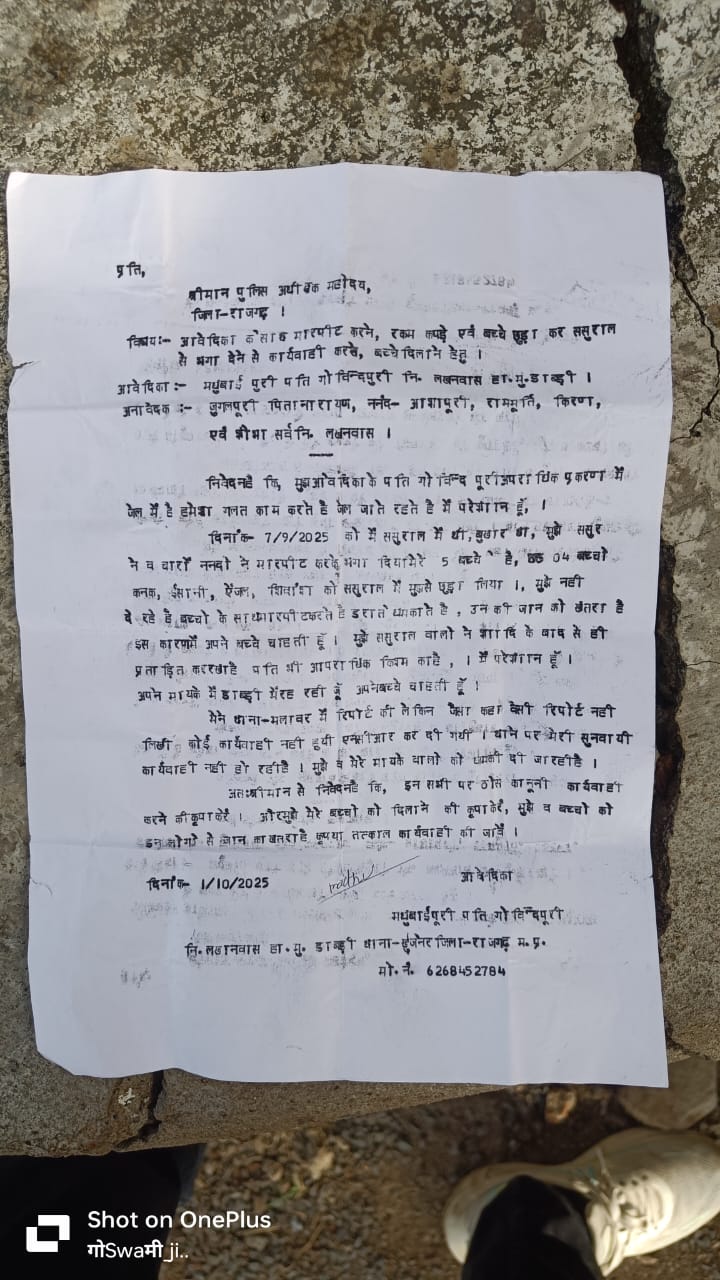 प्रति,
श्रीमान पुलिस अधीक्षक महोदय,
जिला-राजगढ़ ।
विषय:- आवेदिका के साथ मारपीट करने, रकम कपड़े एवं बच्चे छुड़ा कर ससुराल
से भगा देने से कार्यवाही करने, बच्चे दिलाने हेतु ।
आवेदिका:- मधुबाई पुरी पति गोविन्दपुरी नि. लखनवास हा.मु.डाब्डी ।
अनावेदक:- जुगलपूरी पिता नारायण, ननंद- आशापूरी, राममूर्ति, किरण,
एवं सर्व नि. लखनवास ।
निवेदन है कि, मुझ आवेदिका के पति गोविन्द पूरी अपराधिक प्रकरण में
जेल में है हमेशा गलत काम करते है जेल जाते रहते है में परेशान हूँ, ।
दिनांक- 7/9/2025 को में ससुराल में थी, बुखार था, मुझे ससुर
ने व चारों ननदो ने मारपीट करके भगा दिया मेरे 5 बच्चे है, 04 बच्चो
कनक, ईसानी, ऐंजल, शिवांश को ससुराल में मुझसे छुड़ा लिया ।, मुझे नही
दे रहे है बच्चो के साथ मारपीट करते है डराते धमकाते है, उनकी जान को खतरा है
इस कारण में अपने बच्चे चाहती हूँ । मुझे ससुराल वालो ने शादि के बाद से ही
प्रताड़ित कर रखा है पति भी आपराधिक किस्म का है, । में परेशान हूँ ।
अपने मायके में डाब्डी में रह रही हूँ अपने बच्चे चाहती हूँ ।
मेने थाना-मलावर में रिपोर्ट की लेकिन जैसा कहा वेसी रिपोर्ट नही
लिखी कोई कार्यवाही नही हुयी एनसीआर कर दी गयी । थाने पर मेरी सुनवायी
कार्यवाही नही हो रही है । मुझे व मेरे मायके वालो को धमकी दी जा रही है ।
अतः श्रीमान से निवेदन है कि, इन सभी पर ठोस कानूनी कार्यवाही
करने की कृपा करें । और मुझे मेरे बच्चो को दिलाने की कृपा करें, मुझे व बच्चो को
इन लोगो से जान का खतरा है कृपया तत्काल कार्यवाही की जावें ।
दिनांक- 1/10/2025 madhu आवेदिका
मधुबाईपूरी पति गोविन्दपूरी
नि. लखनवास हा.मु. डाब्डी थाना-सुजनेर जिला-राजगढ़ म.प्र.
मो.नं. 6268452784
Shot on OnePlus
गोSwaमी_ji..